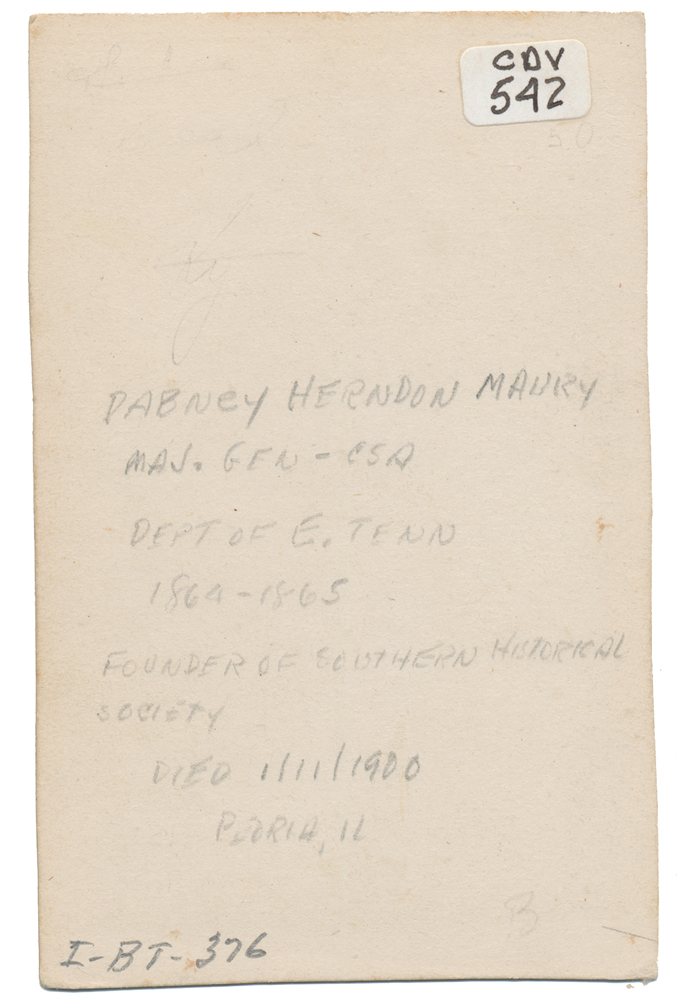 CDV
542
50
DABNEY HERNDON MAURY
MAJ. GEN - CSA
DEPT OF E. TENN
1864-1865
FOUNDER OF SOUTHERN HISTORICAL
SOCIETY
DIED 1/11/1900
PEORIA, IL
B
I-BT-376